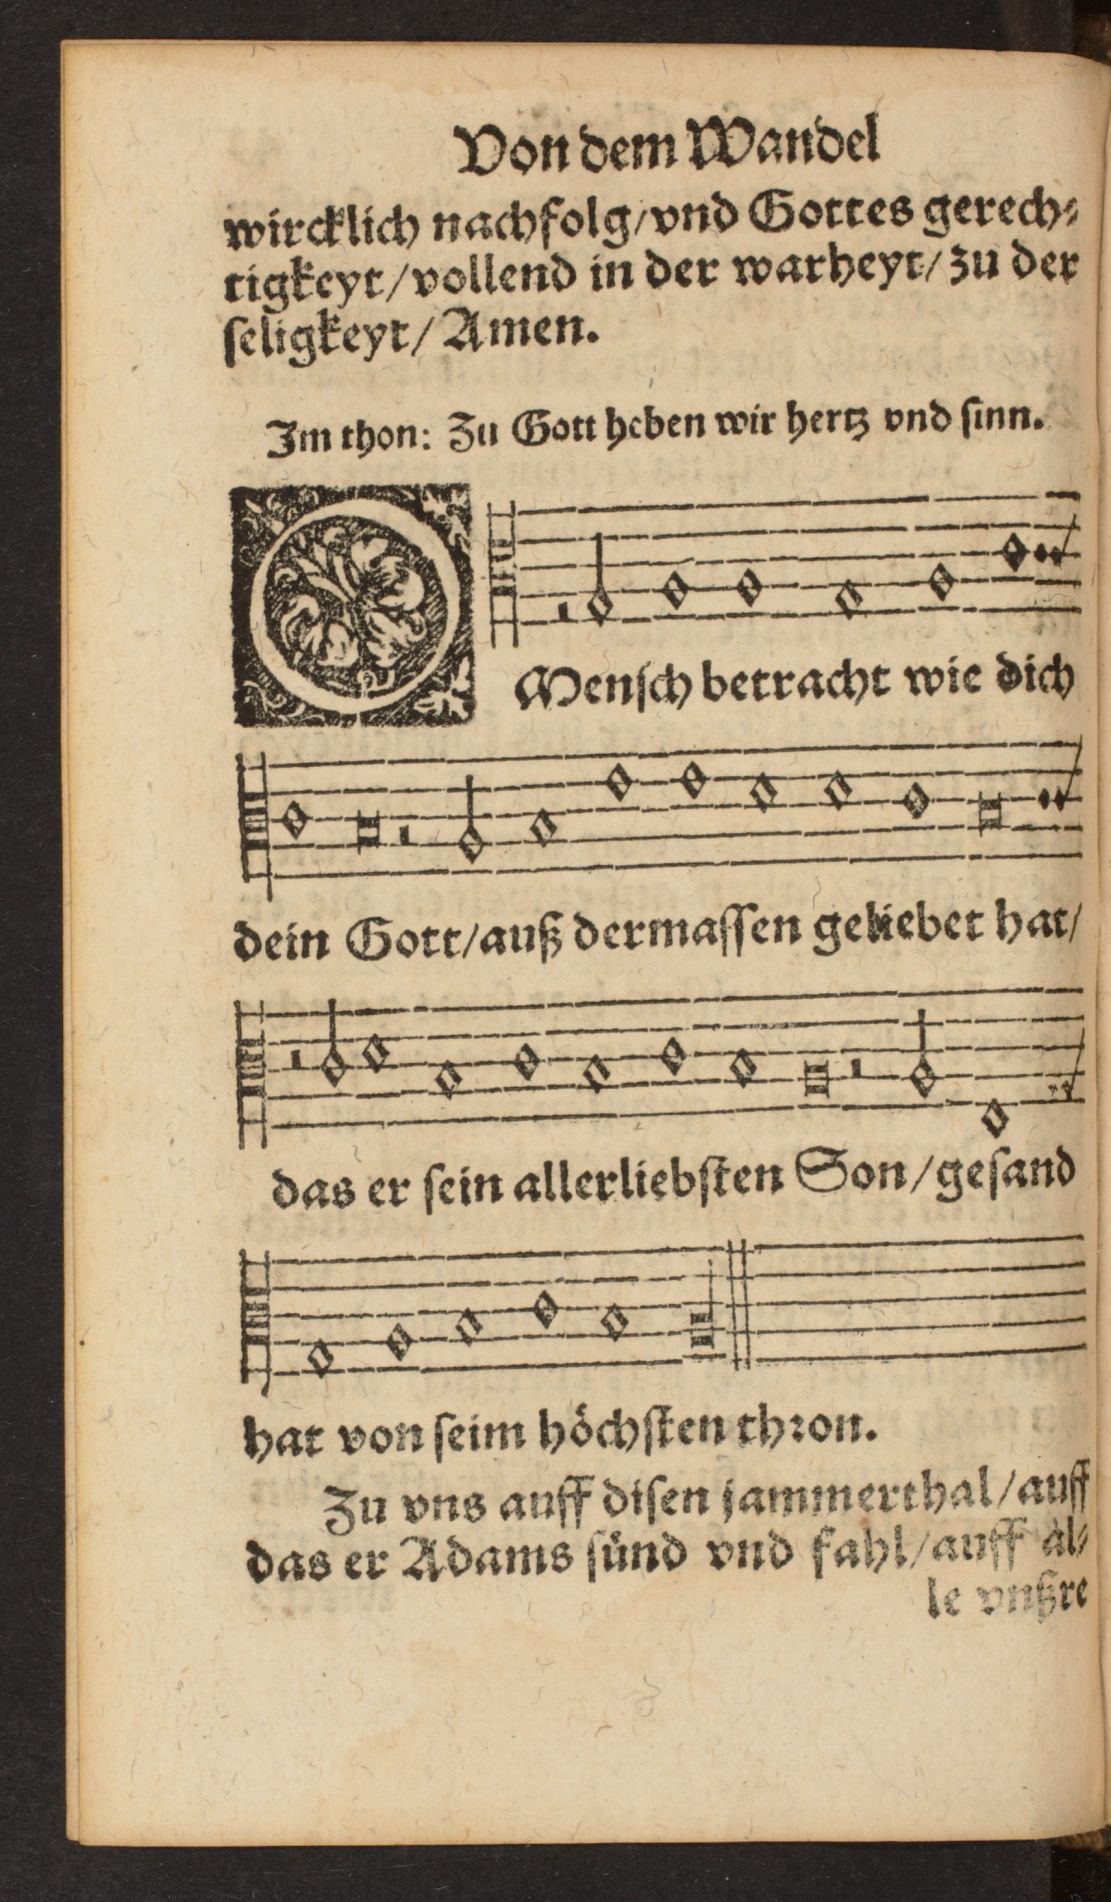 Von dem Wandel
wircklich nachfolg/vnd Gottes gerech⸗
tigkeyt/vollend in der warheyt/zu der
ſeligkeyt/Amen.
Im thon: Zu Gott heben wir hertz vnd ſinn.
O Menſch betracht wie dich
dein Gott/auß dermaſſen geliebet hat/
das er ſein allerliebſten Son/geſand
hat von ſeim höchſten thꝛon.
Zu vns auff diſen jammerthal/auff
das er Adams ſünd vnd fahl/auff al⸗
le vnßre